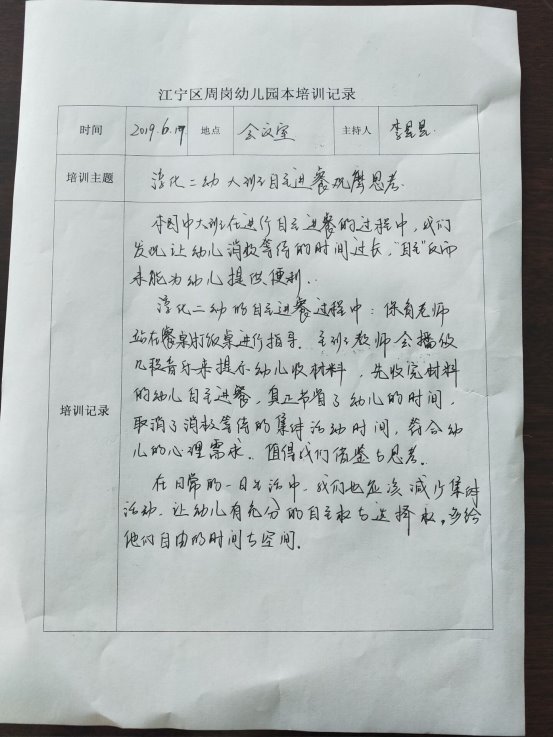 江宁区周岗幼儿园本培训记录
时间 2019.6.19 地点 会议室 主持人 李昆昆
培训主题 淳化二幼大班自主进餐观摩思考.
培训记录
本园中大班在进行自主进餐的过程中,我们
发现让幼儿消极等待的时间过长,"自主"反而
未能为幼儿提供便利.
淳化二幼的自主进餐过程中:保育老师
站在餐桌打饭桌进行指导.主班教师会播放
几段音乐来提示幼儿收材料,先收完材料
的幼儿自主进餐,真正节省了幼儿的时间,
取消了消极等待的集体活动时间,符合幼
儿的心理需求.值得我们借鉴与思考.
在日常的一日生活中,我们也应该减少集体
活动,让幼儿有充分的自主权与选择权,多给
他们自由的时间与空间.